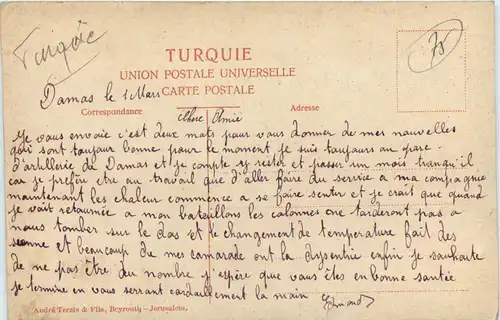 Turquie
70
TURQUIE
UNION POSTALE UNIVERSELLE
CARTE POSTALE
Damas le 1 Mars
Correspondance
Adresse
Chere Amie
Je vous envoie c'est deux mots pour vous donner de mes nouvelles
qui sont toujour bonne pour le moment je suis toujours au parc
d'artillerie de Damas et je compte y rester et passer un mois tranqu'il
car je prefère etre au travail que d'aller faire du service a ma compagnie
maintenant les chaleur commence a se faire sentir et je crait que quand
je vait retournée a mon bataillons les calonnes ne tarderont pas a
nous tomber sur le dos et le changement de temperature fait des
sienne et beaucoup de mes camarade ont la dysentrie enfin je souhaite
de ne pas être du nombre j'espère que vous êtes en bonne santée
je termine en vous serrant cordialement la main
André Terzis & Fils, Beyrouth — Jerusalem.